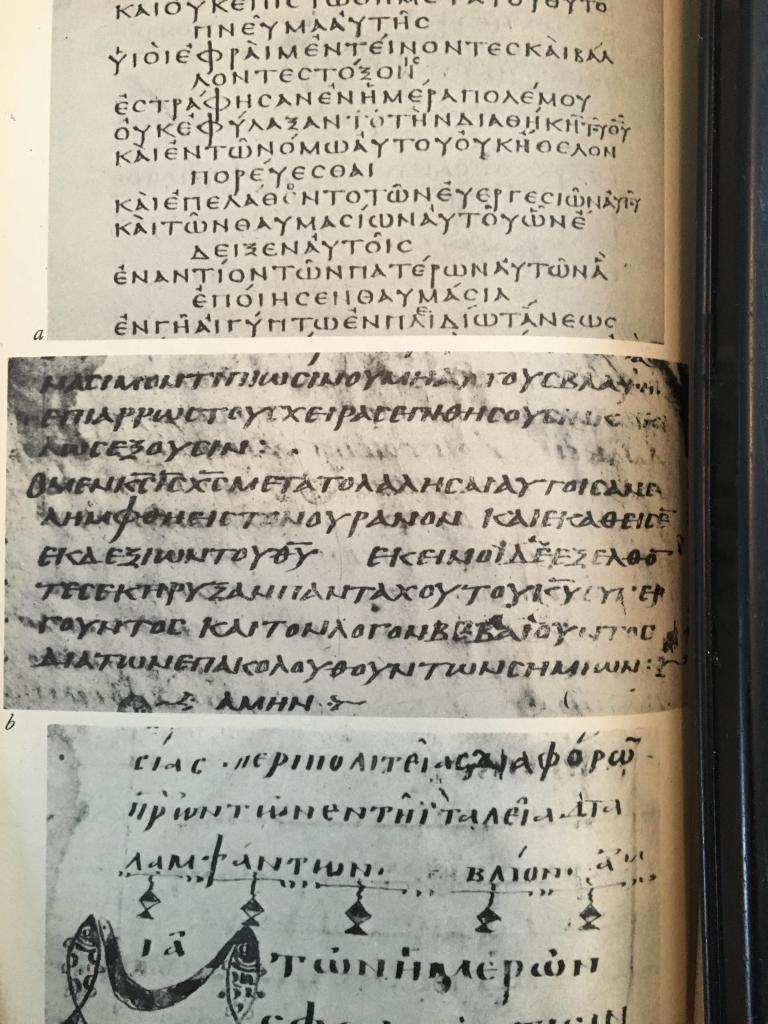 ΚΑΙΟΥΚΕΠΙΣΤΩΘΗΜΕΤΑΤΟΥΘΥΤΟ
ΠΝΕΥΜΑΑΥΤΗΣ
ΥΙΟΙΕΦΡΑΙΜΕΝΤΕΙΝΟΝΤΕΣΚΑΙΒΑΛ
ΛΟΝΤΕΣΤΟΞΟΙΣ
ΕΣΤΡΑΦΗΣΑΝΕΝΗΜΕΡΑΠΟΛΕΜΟΥ
ΟΥΚΕΦΥΛΑΞΑΝΤΗΝΔΙΑΘΗΚΗΤΟΥΘΥ
ΚΑΙΕΝΤΩΝΟΜΩΑΥΤΟΥΟΥΚΗΘΕΛΟΝ
ΠΟΡΕΥΕΣΘΑΙ
ΚΑΙΕΠΕΛΑΘΟΝΤΟΤΩΝΕΥΕΡΓΕΣΙΩΝΑΥΤΥ
ΚΑΙΤΩΝΘΑΥΜΑΣΙΩΝΑΥΤΟΥΩΝΕ
ΔΕΙΞΕΝΑΥΤΟΙΣ
ΕΝΑΝΤΙΟΝΤΩΝΠΑΤΕΡΩΝΑΥΤΩΝΑ
ΕΠΟΙΗΣΕΝΘΑΥΜΑΣΙΑ
ΕΝΓΗΑΙΓΥΠΤΩΕΝΠΕΔΙΩΤΑΝΕΩΣ
a
ΜΑΣΙΜΟΝΤΙΠΙΩΣΙΝΟΥΜΗΑΥΤΟΥΣΒΛΑΨΗ
ΕΠΙΑΡΡΩΣΤΟΥΣΧΕΙΡΑΣΕΠΙΘΗΣΟΥΣΙΝ
ΛΩΣΕΞΟΥΣΙΝ:
ΟΜΕΝΚΣΙΣΧΣΜΕΤΑΤΟΛΑΛΗΣΑΙΑΥΤΟΙΣΑΝΕ
ΛΗΜΦΘΗΕΙΣΤΟΝΟΥΡΑΝΟΝ ΚΑΙΕΚΑΘΕΙΣΕ
ΕΚΔΕΞΙΩΝΤΟΥΘΥ ΕΚΕΙΝΟΙΔΕΕΞΕΛΘΟ
ΤΕΣΕΚΗΡΥΞΑΝΠΑΝΤΑΧΟΥΤΟΥΚΥΣΥΝΕΡ
ΓΟΥΝΤΟΣ ΚΑΙΤΟΝΛΟΓΟΝΒΕΒΑΙΟΥΝΤΟΣ
ΔΙΑΤΩΝΕΠΑΚΟΛΟΥΘΟΥΝΤΩΝΣΗΜΙΩΝ:
ΑΜΗΝ
b
ΣΙΑΣ ·ΠΕΡΙΠΟΛΙΤΕΙΑΣΔΙΑΦΟΡΩ
ΠΡΩΝΤΩΝΕΝΤΗΙΤΑΛΕΙΑΔΙΑ
ΛΑΜΨΑΝΤΩΝ· ΒΛΙΟΝ·
ΙΑ ΤΩΝΗΜΕΡΩΝ